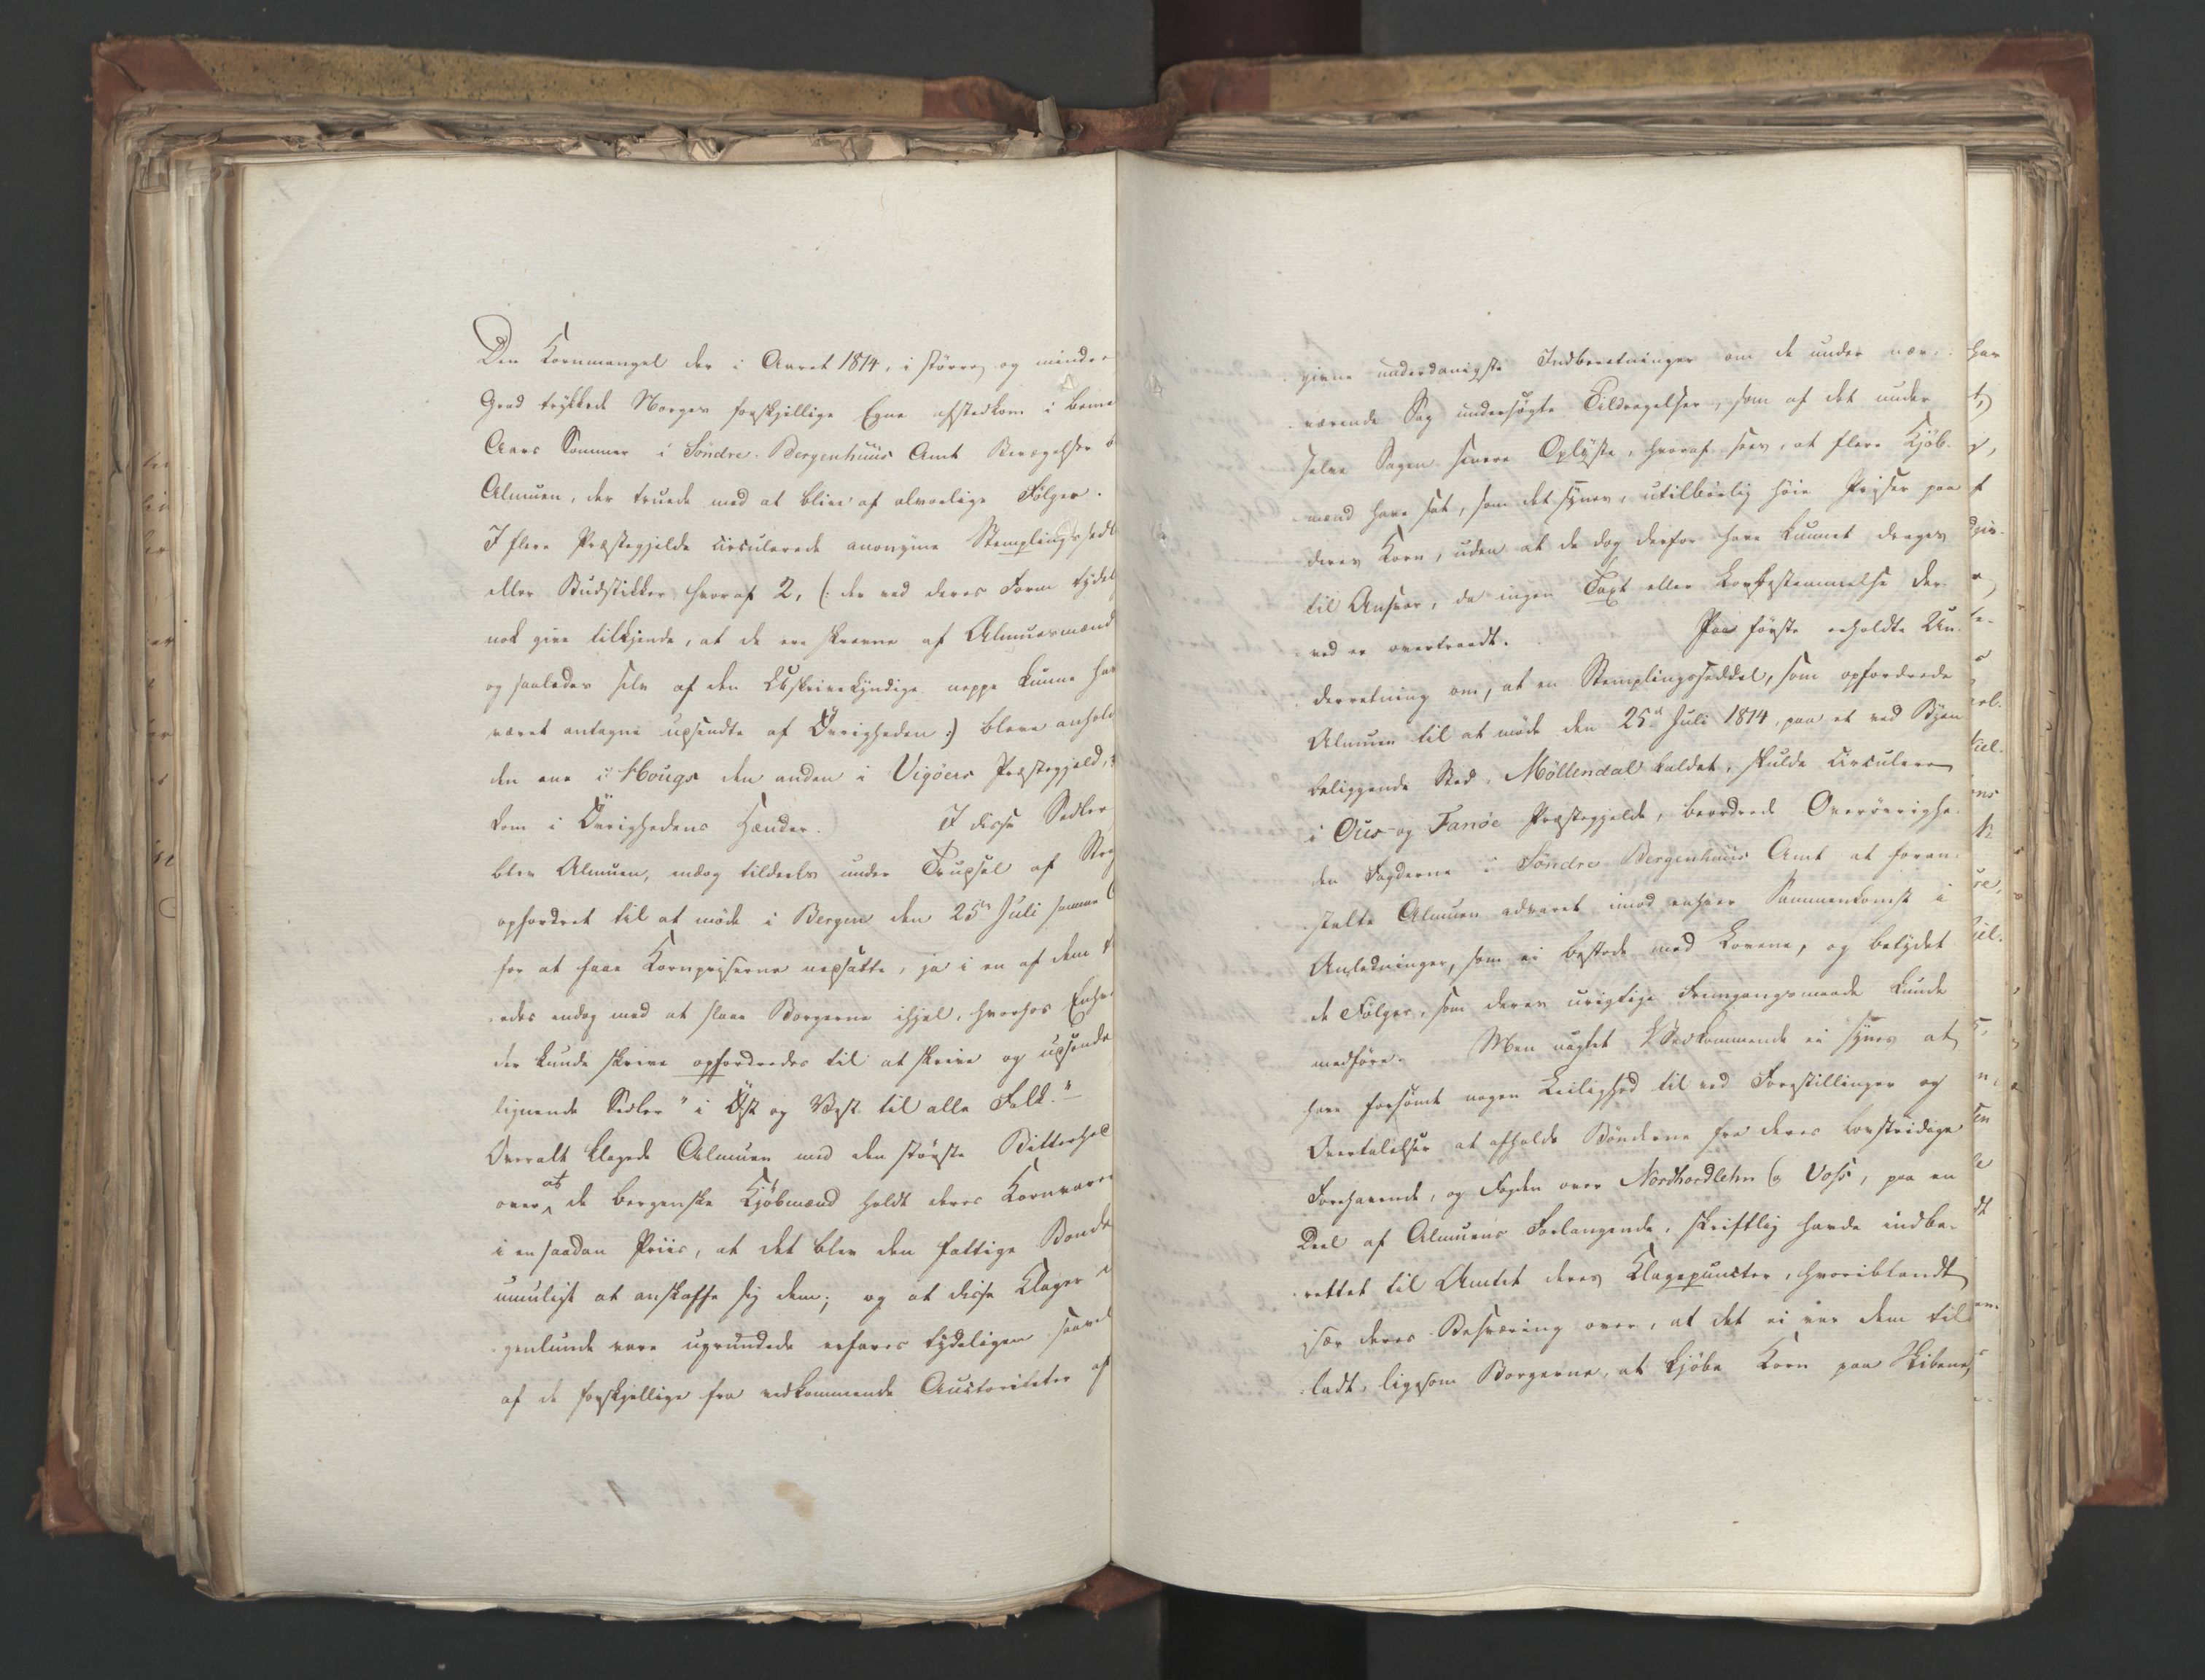 Den Kornmangel der i Aaret 1814, i større og mindre
Grad trykkede Norges forskjellige Egne afstedkom i bem
Aars Sommer i Søndre Bergenhuus Amt Bevægelser
Almuen, der truede med at blive af alvorlige Følger.
I flere Præstegjelde circulerede anonyme Stemplingssedl
eller Budstikker hvoraf 2, (: der ved deres Form tydel
nok give tilkjende, at de ere skrevne af Almuesmænd
og saaledes selv af den Uskrivekyndige neppe kunne hav
været antagne udsendte af Øvrigheden :) bleve anhold
den ene i Hougs den anden i Vigöers Præstegjeld,
kom i Øvrighedens Hænder. I disse Sedler
blev Almuen, endog tildeels under Trudsel af
opfordret til at møde i Bergen den 25de Juli samme
for at faae Kornpriserne nedsatte, ja i en af dem
edes endog med at slaae Borgerne ihjel, hvorhos Enhv
der kunde skrive opfordredes til at skrive og udsende
lignende Sedler "i Øst og Vest til alle Folk."
Overalt klagede Almuen med den største Bitterhed
over at de bergenske Kjøbmænd holdt deres Kornvarer
i en saadan Priis, at det blev den fattige Bonde
umuligt at anskaffe sig dem; og at disse Klager
genlunde vare ugrundede erfares tydeligen saavel
af de forskjellige fra vedkommende Auctoriteter af
givne underdanigste Indberetninger om de under nær-
værende Sag undersøgte Tildragelser, som af det under
selve Sagen senere Oplyste, hvoraf sees, at flere Kjøb-
mænd have sat, som det synes, utilbørlig høie Priser paa
deres Korn, uden at de dog derfor have kunnet drages
til Ansvar, da ingen Taxt eller Lovbestemmelse der-
ved er overtraadt. Paa første erholdte Un-
derretning om, at en Stemplingsseddel, som opfordrede
Almuen til at møde den 25de Juli 1814, paa et ved Byen
beliggende Sted, Möllendal kaldet, skulde circulere
i Ous og Fanöe Præstegjelde, beordrede Overøvrighe-
den Fogderne i Søndre Bergenhuus Amt at foran-
stalte Almuen advaret imod enhver Sammenkomst i
Anledninger, som ei bestode med Lovene, og betydet
de Følger, som deres urigtige Fremgangsmaade kunde
medføre. Men uagtet Vedkommende ei synes at
have forsømt nogen Leilighed til ved Forestillinger og
Overtalelser at afholde Bønderne fra deres lovstridige
Forehavende, og Fogden over Nordhordlehn og Voss, paa en
Deel af Almuens Forlangende, skriftlig havde indbe-
rettet til Amtet deres Klagepuncter, hvoriblandt
især deres Besværing over, at det ei var dem til-
ladt, ligesom Borgerne, at kjøbe Korn paa Skibene